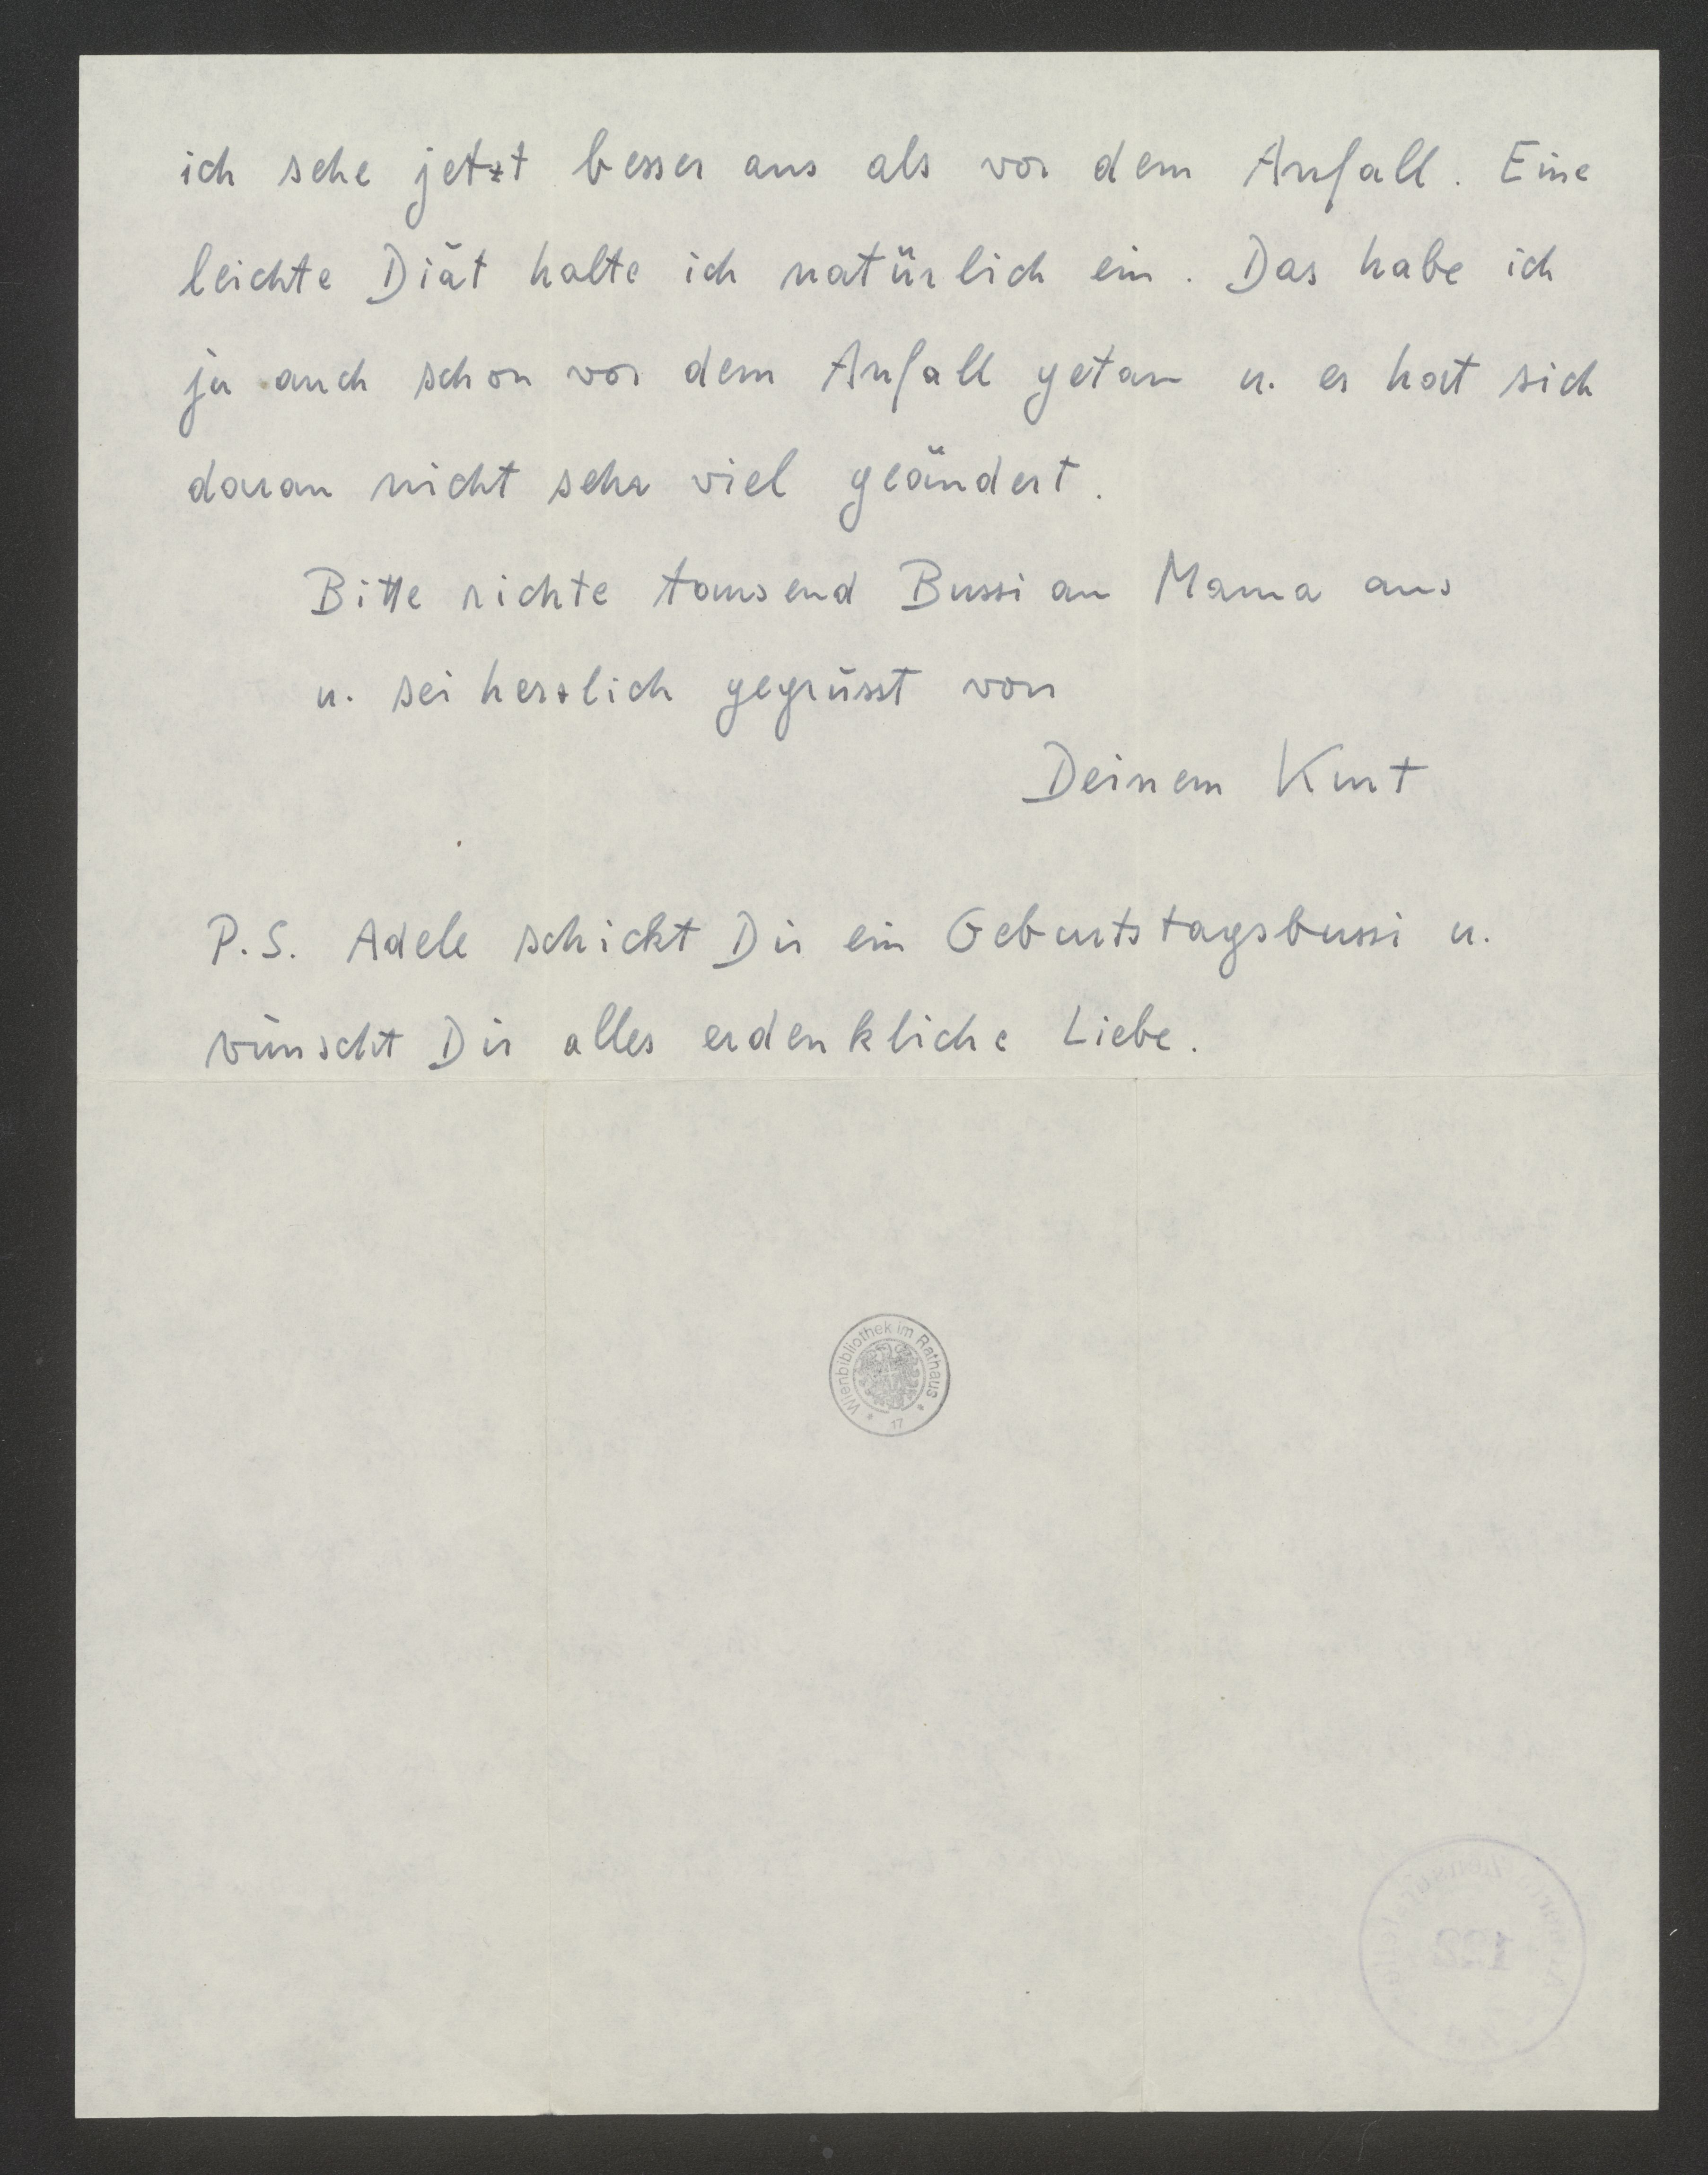 ich sehe jetzt besser aus als vor dem Anfall. Eine
leichte Diät halte ich natürlich ein. Das habe ich
ja auch schon vor dem Anfall getan u. es hat sich
daran nicht sehr viel geändert.
Bitte richte tausend Bussi an Mama aus
u. sei herzlich gegrüsst von
Deinem Kurt
P.S. Adele schickt Dir ein Geburtstagsbussi u.
wünscht Dir alles erdenkliche Liebe.
Wienbibliothek im Rathaus
17
122